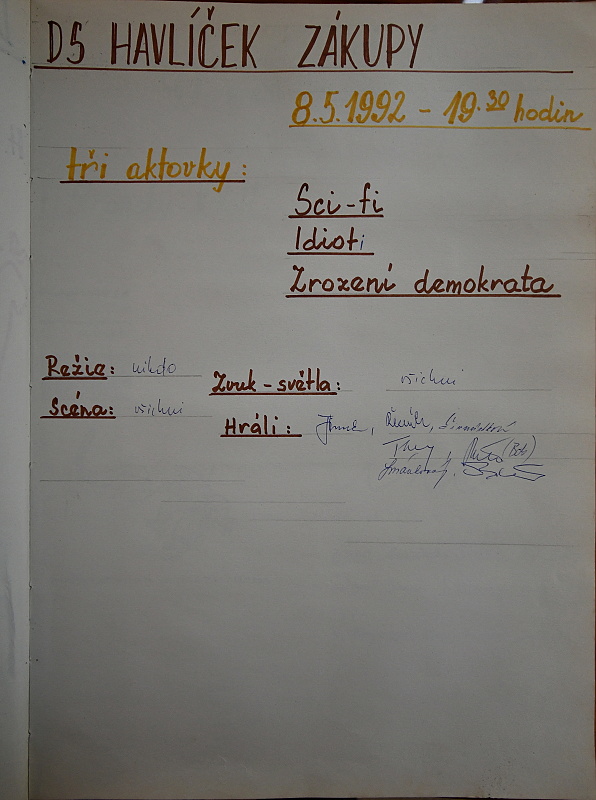 DS HAVLÍČEK ZÁKUPY
8.5.1992 - 19.30 hodin
tři aktovky:
Sci-fi
Idioti
Zrození demokrata
Režie: nikdo
Zvuk-světla: všichni
Scéna: všichni
Hráli:
(Bob)